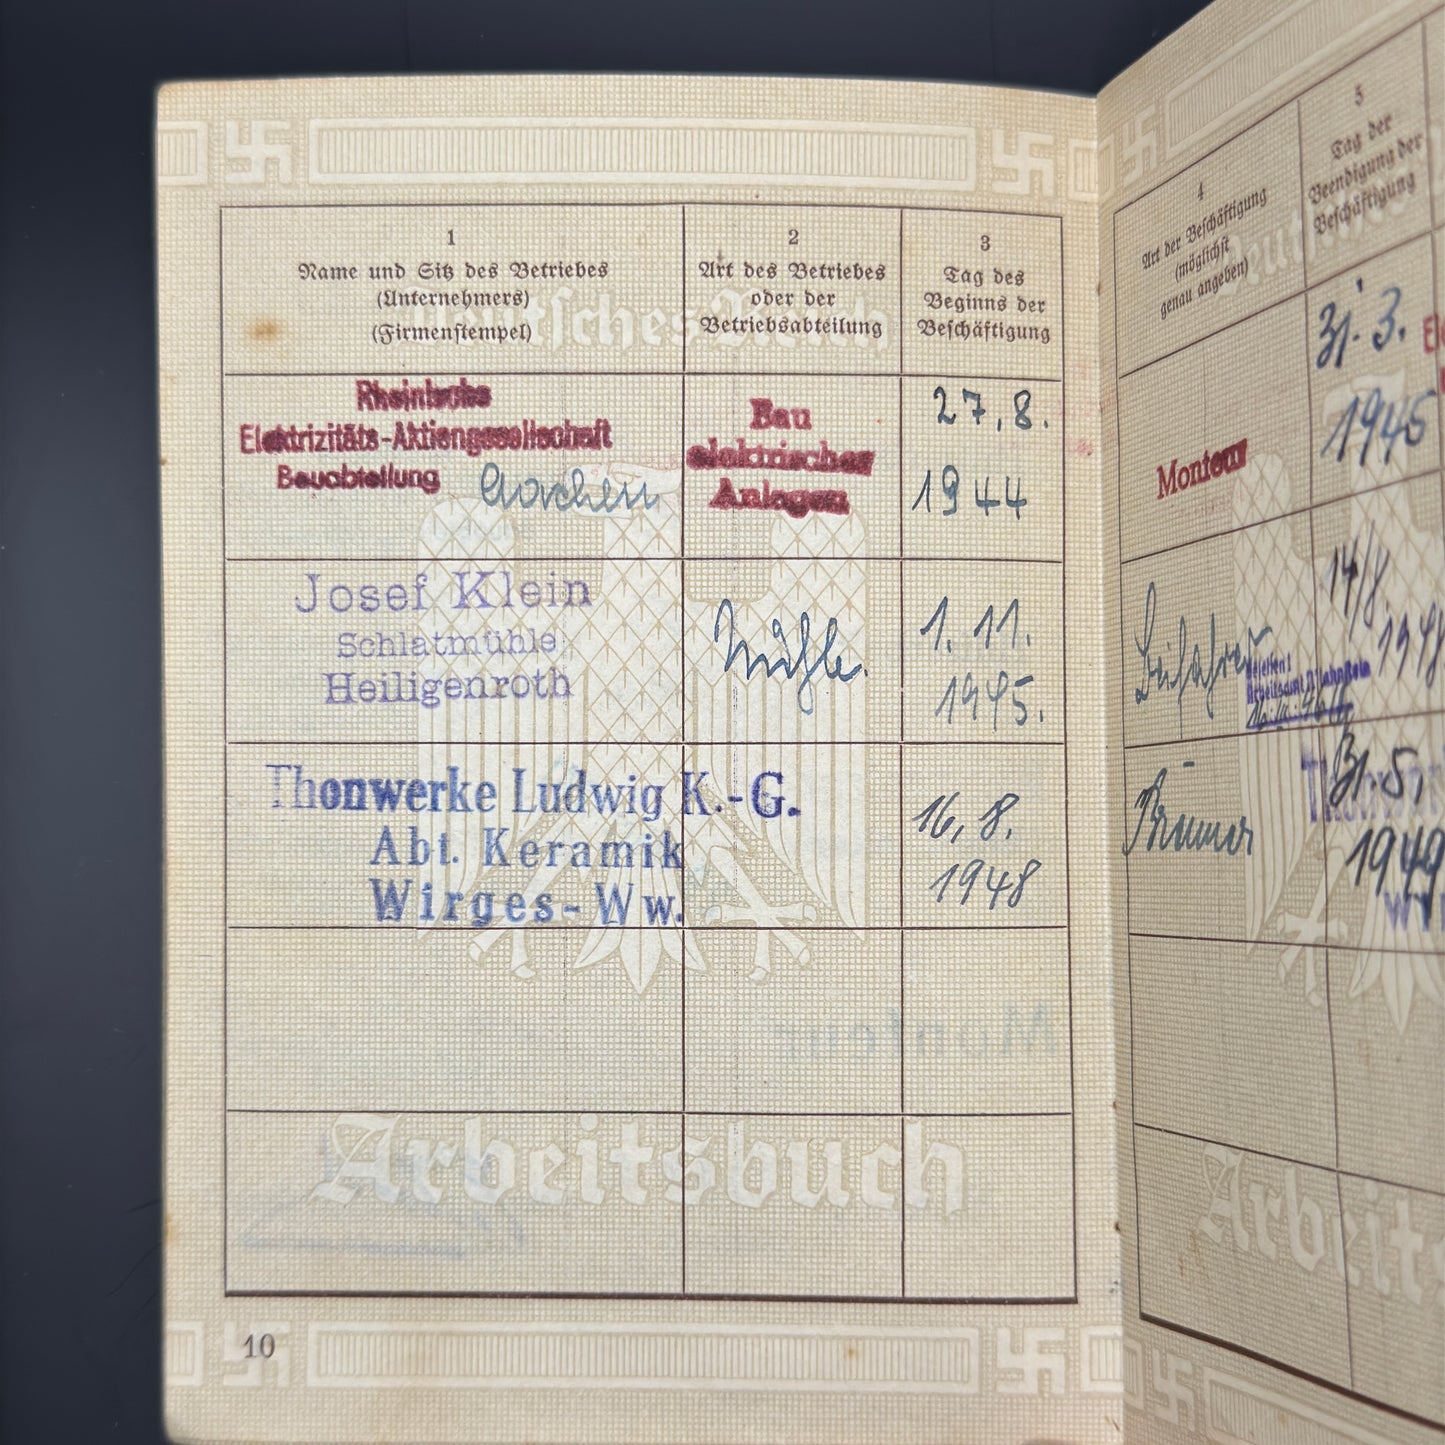 1
Name und Sitz des Betriebes
(Unternehmers)
(Firmenstempel)
2
Art des Betriebes
oder der
Betriebsabteilung
3
Tag des
Beginns der
Beschäftigung
Deutsches Reich
Rheinische
Elektrizitäts-Aktiengesellschaft
Bauabteilung Aachen
Bau
elektrischer
Anlagen
27. 8.
1944
Josef Klein
Schlatmühle
Heiligenroth
Mühle.
1. 11.
1945.
Thonwerke Ludwig K.-G.
Abt. Keramik
Wirges-Ww.
16. 8.
1948
Monteur
Arbeitsbuch
10
4
Art der Beschäftigung
(möglichst
genau angeben)
5
Tag der
Beendigung der
Beschäftigung
Monteur
31. 3.
1945
14/8
1948
Gesehen!
Arbeitsamt
31. 5.
1949